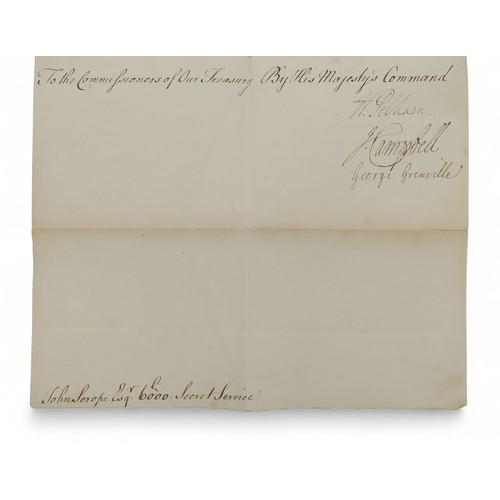 To the Commissioners of Our Treasury By His Majesty's Command
H. Pelham.
J. Campbell
George Grenville
John Scrope Esqr. 6000.l Secret Service